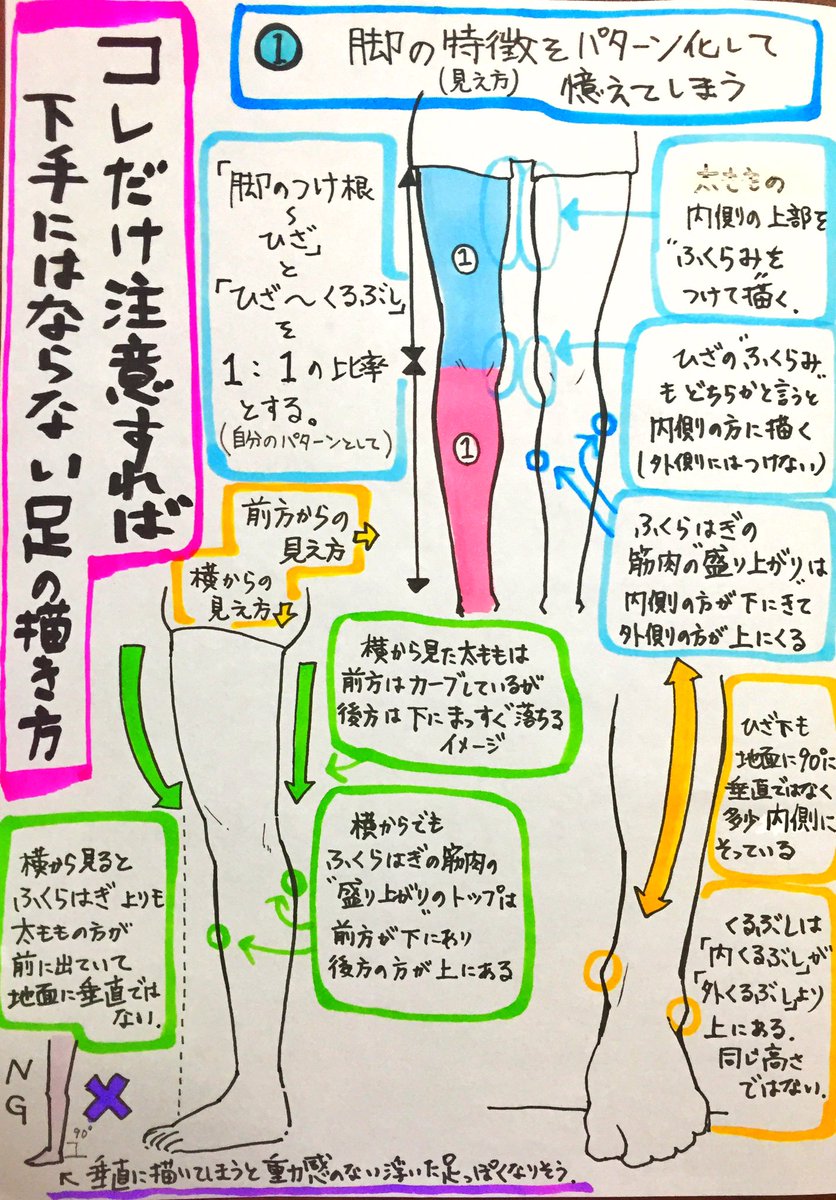 コレだけ注意すれば
下手にはならない足の描き方
① 脚の特徴をパターン化して
(見え方) 憶えてしまう
「脚のつけ根
〜
ひざ」
と
「ひざ〜くるぶし」
を
1:1の比率
とする。
(自分のパターンとして)
①
①
太ももの
内側の上部を
"ふくらみ"を
つけて描く.
ひざの"ふくらみ"
もどちらかと言うと
内側の方に描く
(外側にはつけない)
ふくらはぎの
筋肉の"盛り上がり"は
内側の方が下にきて
外側の方が上にくる
前方からの
見え方
横からの
見え方
横から見た太ももは
前方はカーブしているが
後方は下にまっすぐ落ちる
イメージ
横からでも
ふくらはぎの筋肉の
"盛り上がりのトップ"は
前方が下にあり
後方の方が上にある
横から見ると
ふくらはぎよりも
太ももの方が
前に出ていて
地面に垂直では
ない.
ひざ下も
地面に90°に
垂直ではなく
多少内側に
そっている
くるぶしは
「内くるぶし」が
「外くるぶし」より
上にある.
同じ高さ
ではない.
NG
90°
↖垂直に描いてしまうと重力感のない浮いた足っぽくなりそう.